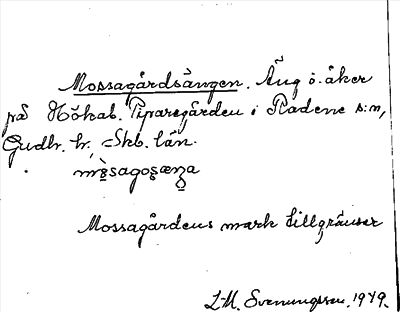 Mossagårdsängen. Äng o. åker
på Hökab. Piparegården i Radene s:n,
Gudh. hr, Skb. län.
Mossagårdens mark tillgränsar
L-M. Svenungsson, 1949.